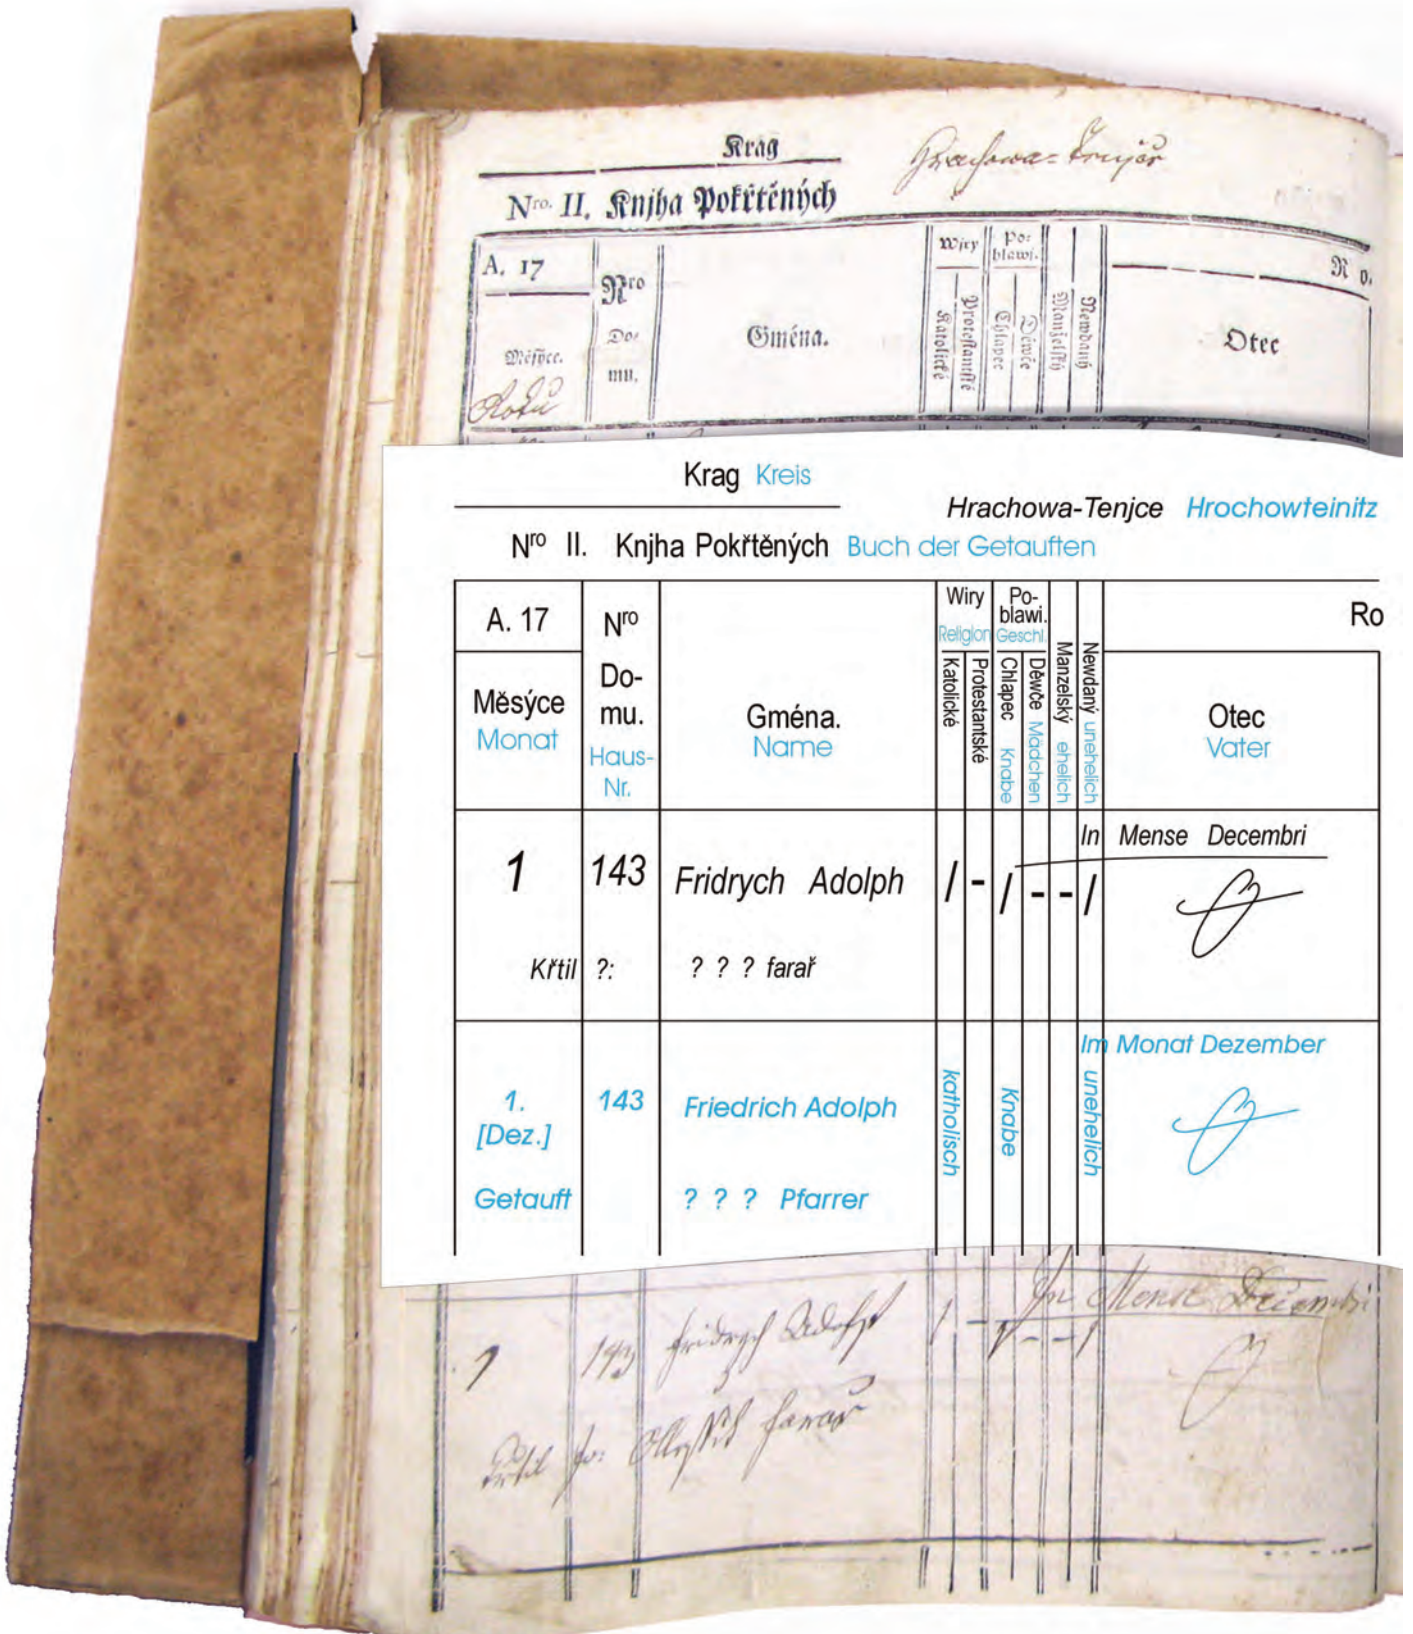 Krag
Hrachowa-Tenjce
Nro. II. Knjha Pokřtěných
A. 17
Měsýce.
Roku
Nro
Do-
mu.
Gména.
Wjry
Katolické
Protestantské
Po-
hlawj.
Chlapec
Děwče
Manželský
Newdaný
R o.
Otec
Krag Kreis
Hrachowa-Tenjce Hrochowteinitz
Nro II. Knjha Pokřtěných Buch der Getauften
A. 17
Měsýce
Monat
Nro
Do-
mu.
Haus-
Nr.
Gména.
Name
Wiry
Religion
Katolické
Protestantské
Po-
blawi.
Geschl.
Chlapec Knabe
Děwče Mädchen
Manzelský ehelich
Newdaný unehelich
Ro
Otec
Vater
In Mense Decembri
1 143 Fridrych Adolph / - / - - /
Křtil ?: ? ? ? farař
Im Monat Dezember
1. 143 Friedrich Adolph katholisch Knabe unehelich
[Dez.]
Getauft ? ? ? Pfarrer
In Mense Decembri
1 143 Fridrych Adolph / - / - - /
Křtil farař